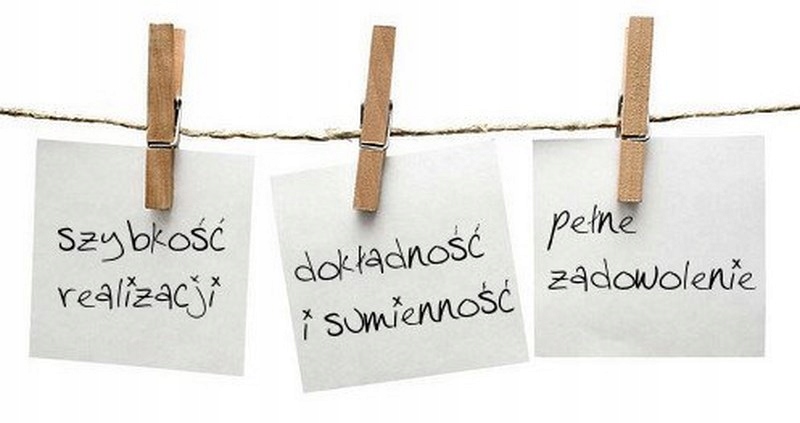 szybkość
realizacji
dokładność
i sumienność
pełne
zadowolenie